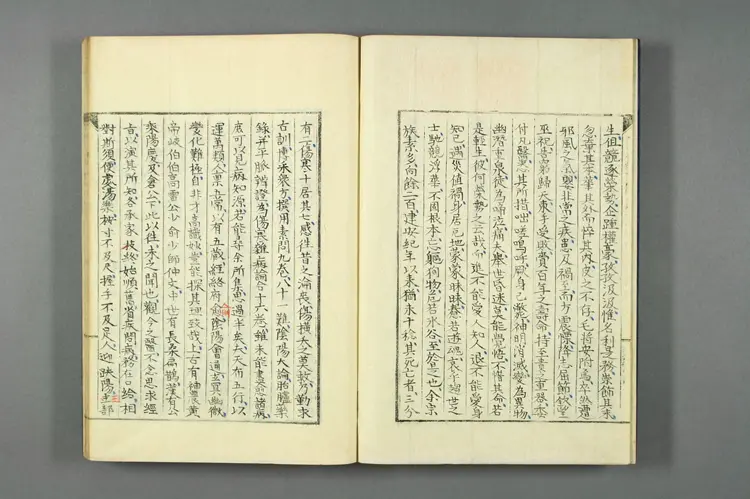 生、但競逐榮勢、企踵權豪、孜孜汲汲、惟名利是務、崇飾其末、
忽棄其本、華其外而悴其内、皮之不存、毛將安附焉、卒然遭
邪風之氣、嬰非常之疾、患及禍至、而方震慄、降志屈節、欽望
巫祝、告窮歸天、束手受敗、賫百年之壽命、持至貴之重器、委
付凡醫、恣其所措、咄嗟嗚呼、厥身已斃、神明消滅、變為異物、
幽潛重泉、徒為啼泣、痛夫、舉世昏迷、莫能覺悟、不惜其命、若
是輕生、彼何榮勢之云哉、而進不能愛人知人、退不能愛身
知己、遇災值禍、身居厄地、蒙蒙昧昧、惷若遊魂、哀乎、趨世之
士、馳競浮華、不固根本、忘軀徇物、危若氷谷、至於是也、余宗
族素多、向餘二百、建安紀年以来、猶未十稔、其死亡者、三分
有二、傷寒十居其七、感往昔之淪喪、傷橫夭之莫救、乃勤求
古訓、博采衆方、撰用素問九卷、八十一難、陰陽大論、胎臚藥
錄、并平脉辨證、為傷寒雜病論、合十六卷、雖未能盡愈諸病、
庶可以見病知源、若能尋余所集、思過半矣、夫天布五行、以
運萬類、人稟五常、以有五藏、經絡府俞、陰陽會通、玄冥幽微、
變化難極、自非才高識妙、豈能探其理致哉、上古有神農、黄
帝、岐伯、伯高、雷公、少俞、少師、仲文、中世有長桑、扁鵲、漢有公
乘陽慶及倉公、下此以往、未之聞也、觀今之醫、不念思求經
旨、以演其所知、各承家技、終始順舊、省疾問病、務在口給、相
對斯須、便處湯藥、按寸不及尺、握手不及足、人迎趺陽、三部